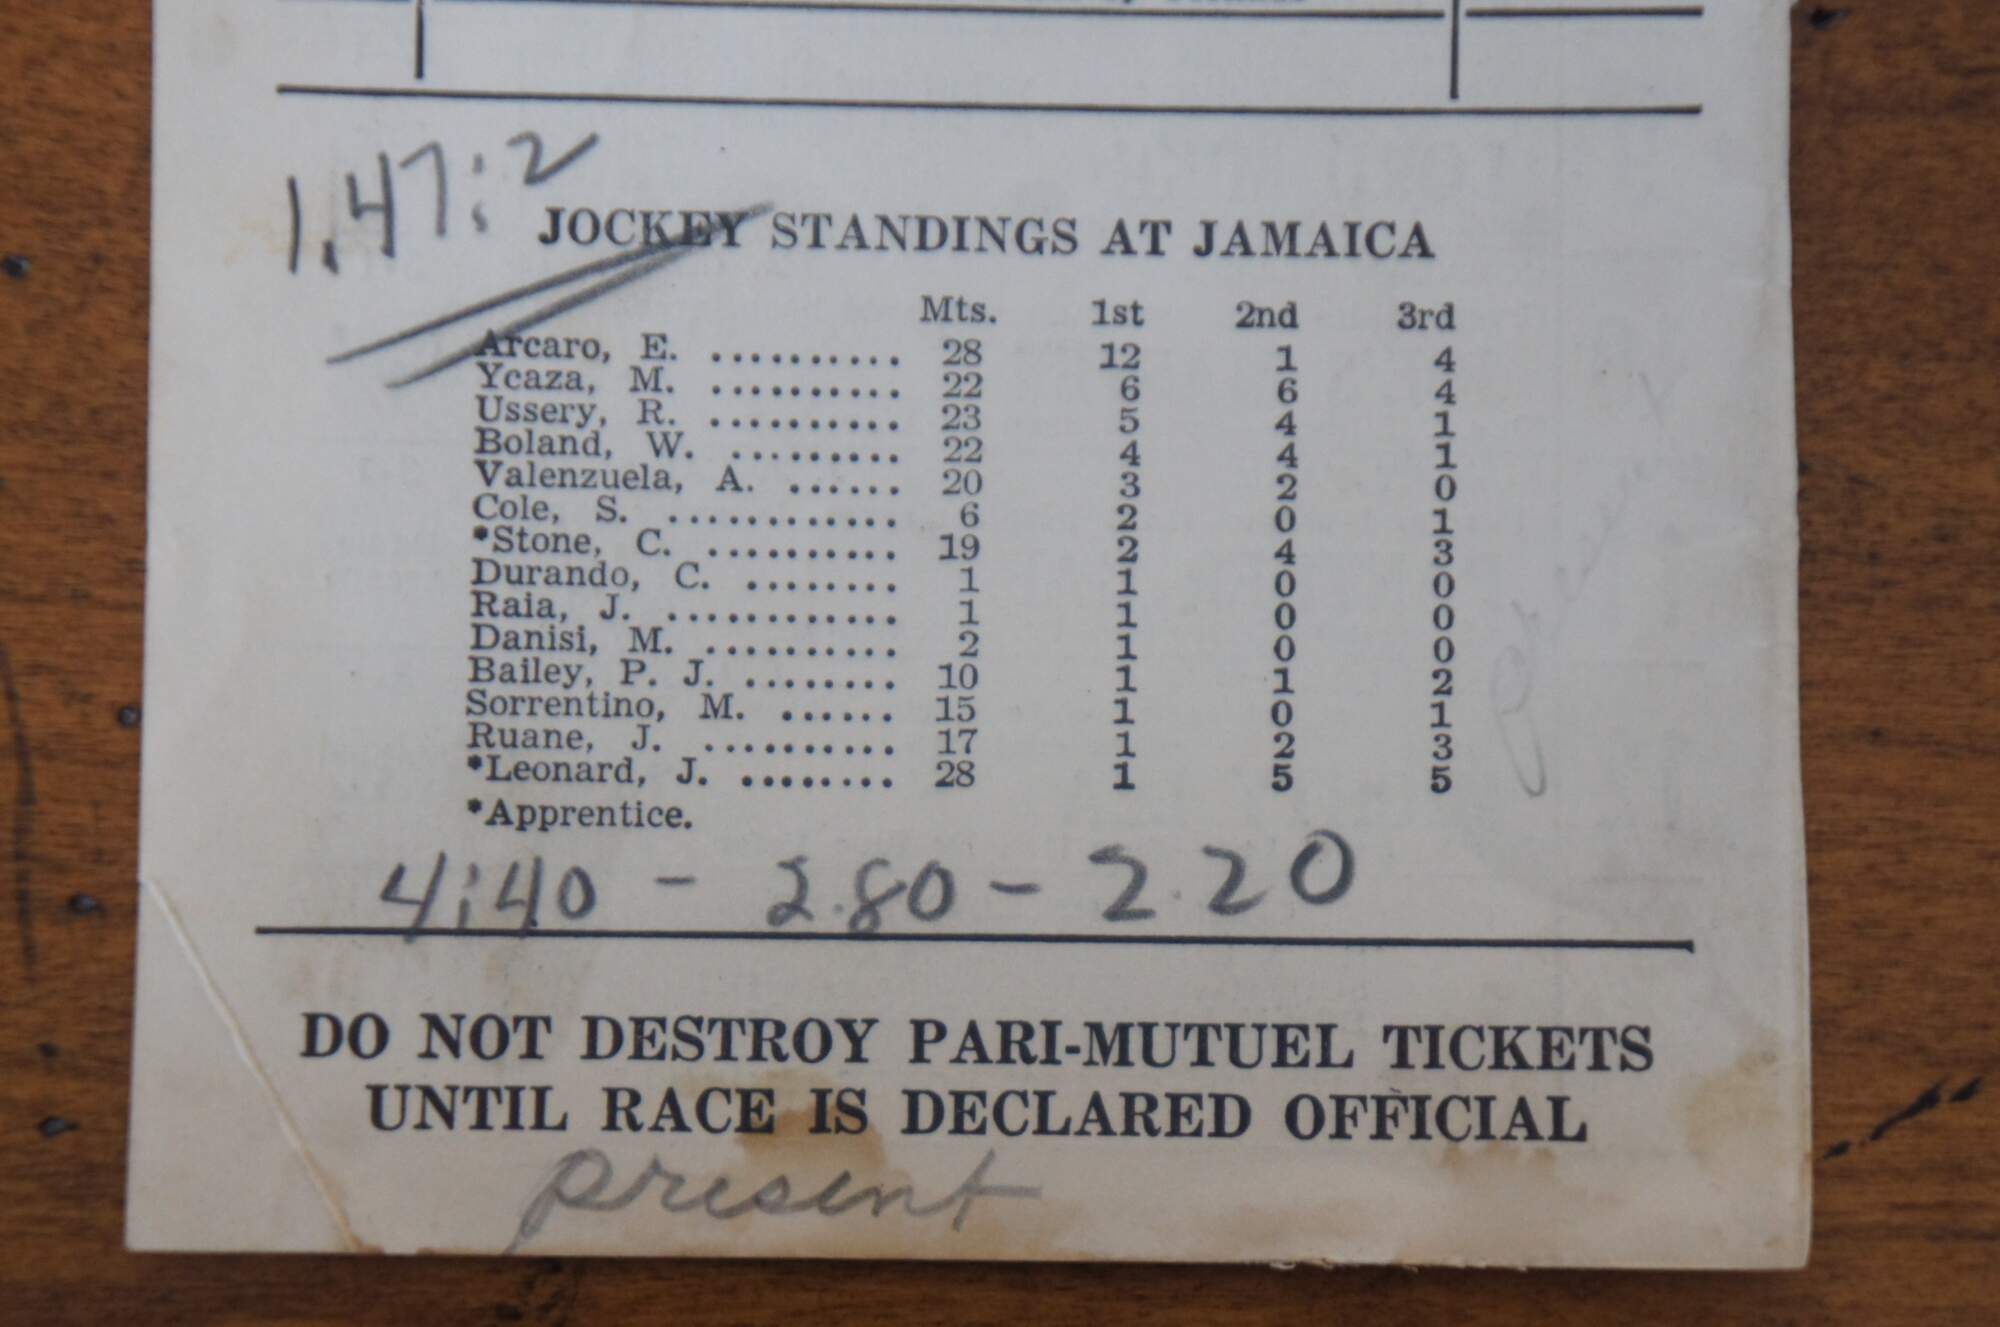 1,47:2
JOCKEY STANDINGS AT JAMAICA
Mts. 1st 2nd 3rd
Arcaro, E. .......... 28 12 1 4
Ycaza, M. .......... 22 6 6 4
Ussery, R. .......... 23 5 4 1
Boland, W. ......... 22 4 4 1
Valenzuela, A. ...... 20 3 2 0
Cole, S. ............ 6 2 0 1
*Stone, C. .......... 19 2 4 3
Durando, C. ........ 1 1 0 0
Raia, J. ............ 1 1 0 0
Danisi, M. .......... 2 1 0 0
Bailey, P. J. ........ 10 1 1 2
Sorrentino, M. ...... 15 1 0 1
Ruane, J. .......... 17 1 2 3
*Leonard, J. ........ 28 1 5 5
*Apprentice.
4:40 - 2.80 - 2.20
DO NOT DESTROY PARI-MUTUEL TICKETS
UNTIL RACE IS DECLARED OFFICIAL
present